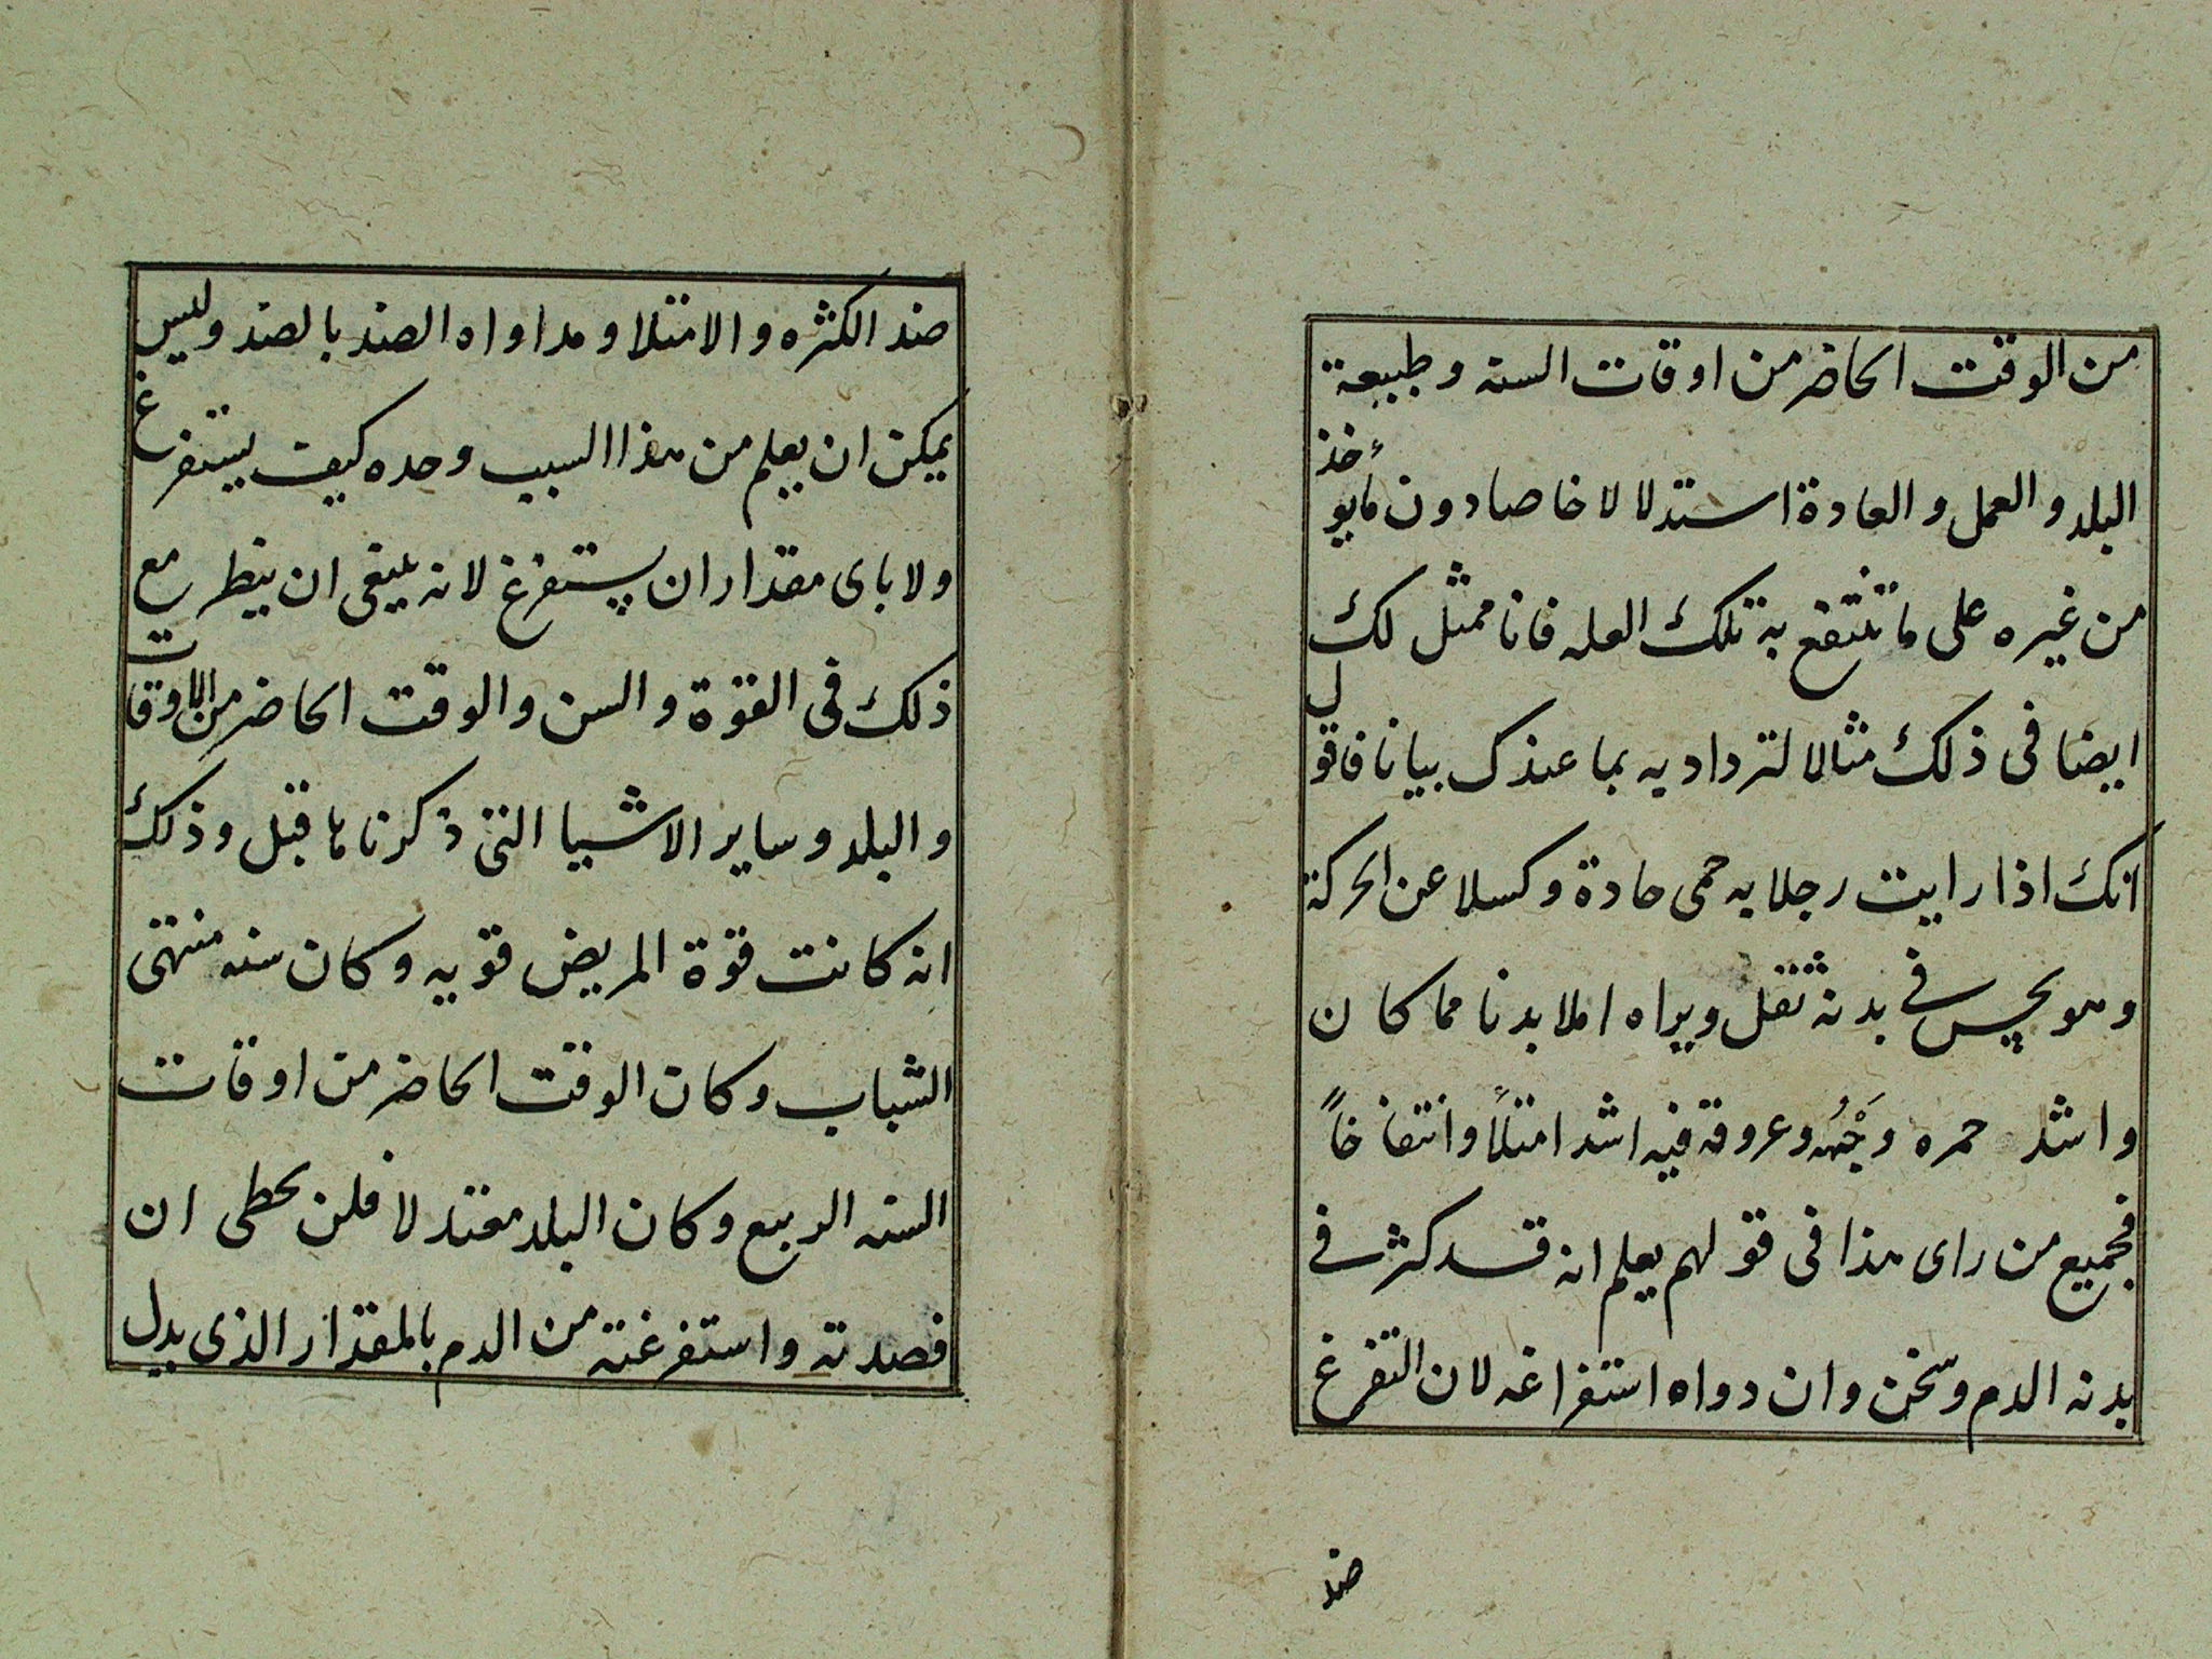 من الوقت الحاضر من اوقات السنه وطبيعة
البلد والعمل والعادة استدلالا خاصا دون مايؤخذ
من غيره على ما تنتفع به تلك العله فانا ممثل لك
ايضا فى ذلك مثالا لتزداد به بما عندك بيانا فاقول
انك اذا رايت رجلا به حمى حادة وكسلا عن الحركة
وهو يحس فى بدنه ثقل ويراه املا بدنا مما كان
واشد حمره وَجْهُه وعروقه فيه اشد امتلأ وانتفاخاً
فجميع من راى هذا فى قولهم يعلم انه قد كثر فى
بدنه الدم وسخن وان دواه استفراغه لان التفرغ
ضد
ضد الكثره والامتلا ومداواه الضد بالضد وليس
يمكن ان يعلم من هذا السبب وحده كيف يستفرغ
ولا باى مقدار ان يستفرغ لانه ينبغى ان ينظر مع
ذلك فى القوة والسن والوقت الحاضر من الاوقات
والبلد وساير الاشيا التى ذكرناها قبل وذلك
انه كانت قوة المريض قويه وكان سنه منتهى
الشباب وكان الوقت الحاضر من اوقات
السنه الربيع وكان البلد معتدلا فلن يخطى ان
فصدته واستفرغته من الدم بالمقدار الذى يدل